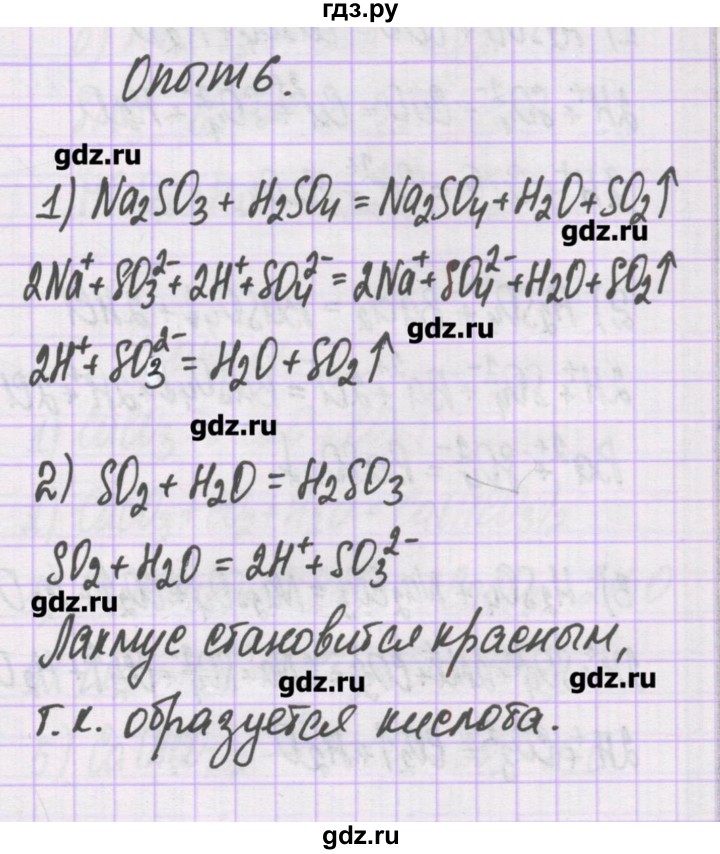 гдз.ру
Опыт 6.
gdz.ru
1) Na₂SO₃ + H₂SO₄ = Na₂SO₄ + H₂O + SO₂↑
gdz.ru
2Na⁺ + SO₃²⁻ + 2H⁺ + SO₄²⁻ = 2Na⁺ + SO₄²⁻ + H₂O + SO₂↑
gdz.ru
2H⁺ + SO₃²⁻ = H₂O + SO₂↑
gdz.ru
2) SO₂ + H₂O = H₂SO₃
SO₂ + H₂O = 2H⁺ + SO₃²⁻
gdz.ru
Лакмус становится красным,
gdz.ru gdz.ru
т.к. образуется кислота.
gdz.ru